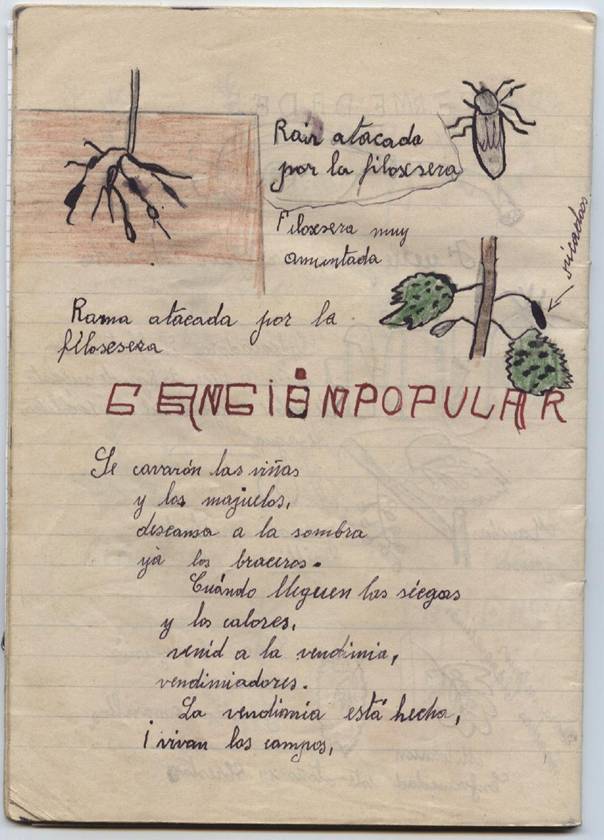 Raiz atacada
por la filoxsera
Filoxsera muy
aumintada
picadas
Rama atacada por la
filoxsera
CANCIÓN POPULAR
Se cavarón las viñas
y los majuelos,
descansa a la sombra
yà los braceros.
Cuándo lleguen las siegas
y los calores,
venid a la vendimia,
vendimiadores.
La vendimia está hecha,
¡vivan los campos,